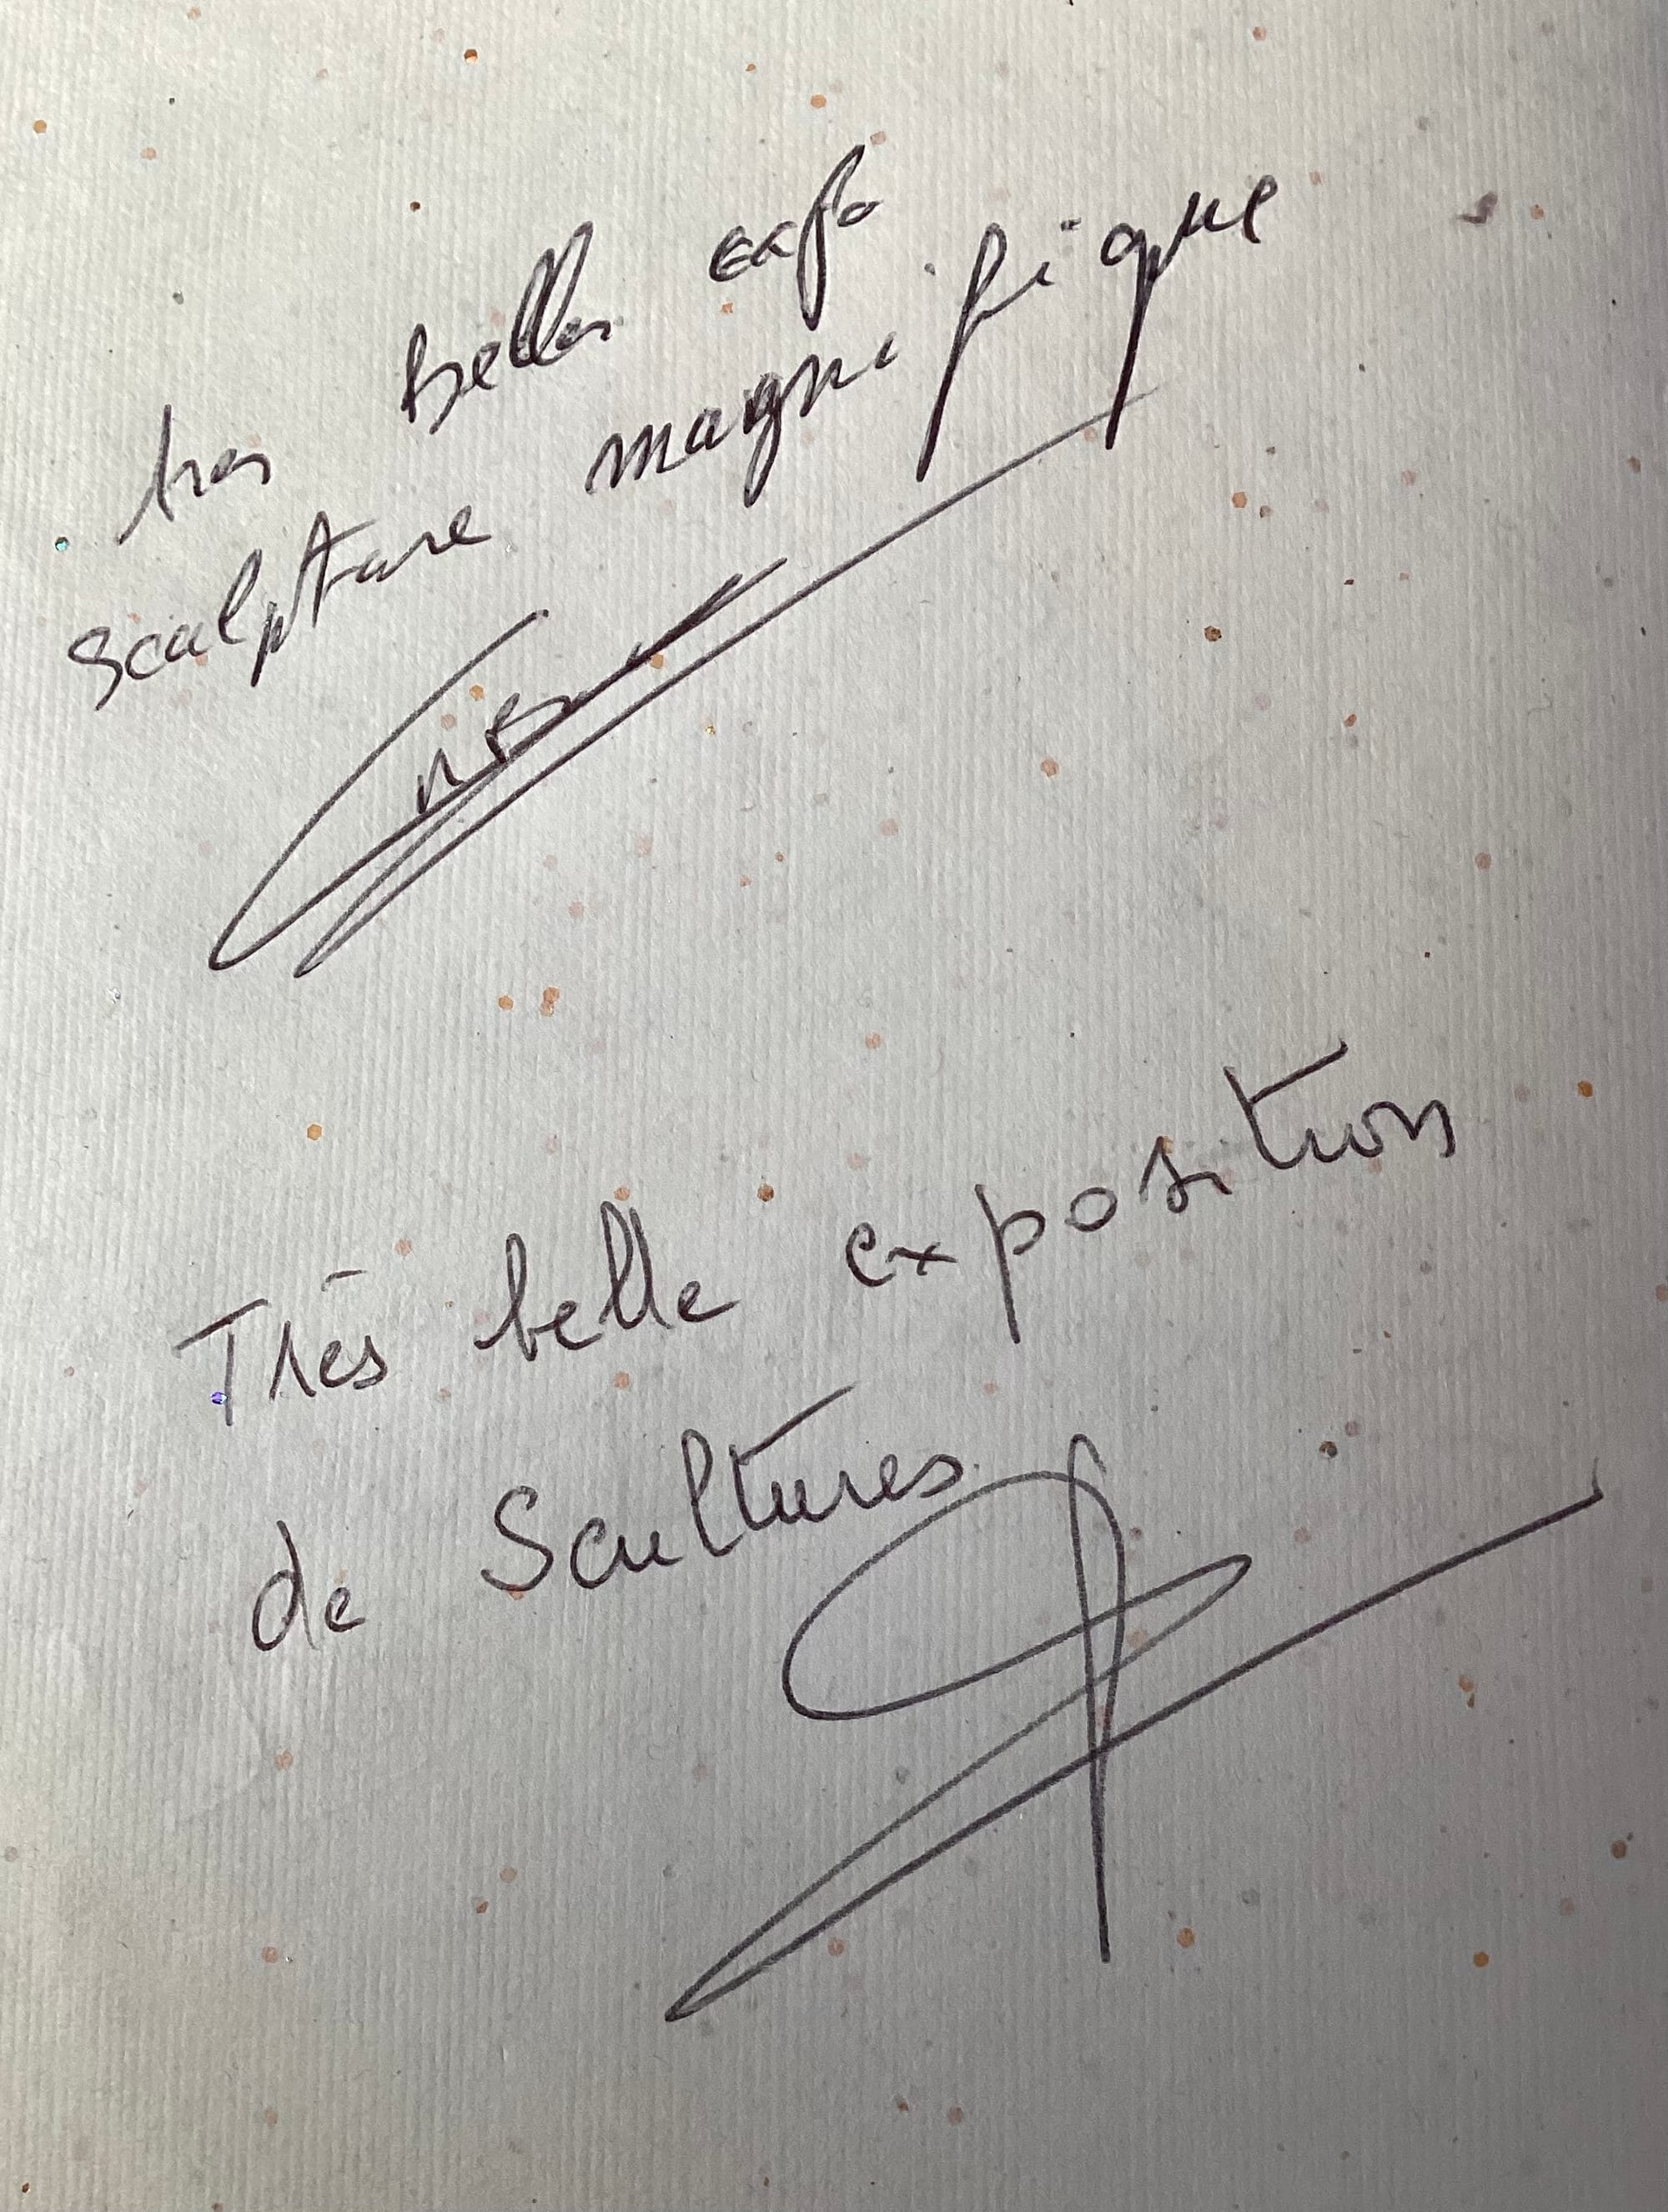 tres belles expo
sculpture magnifique
Très belle exposition
de Scultures